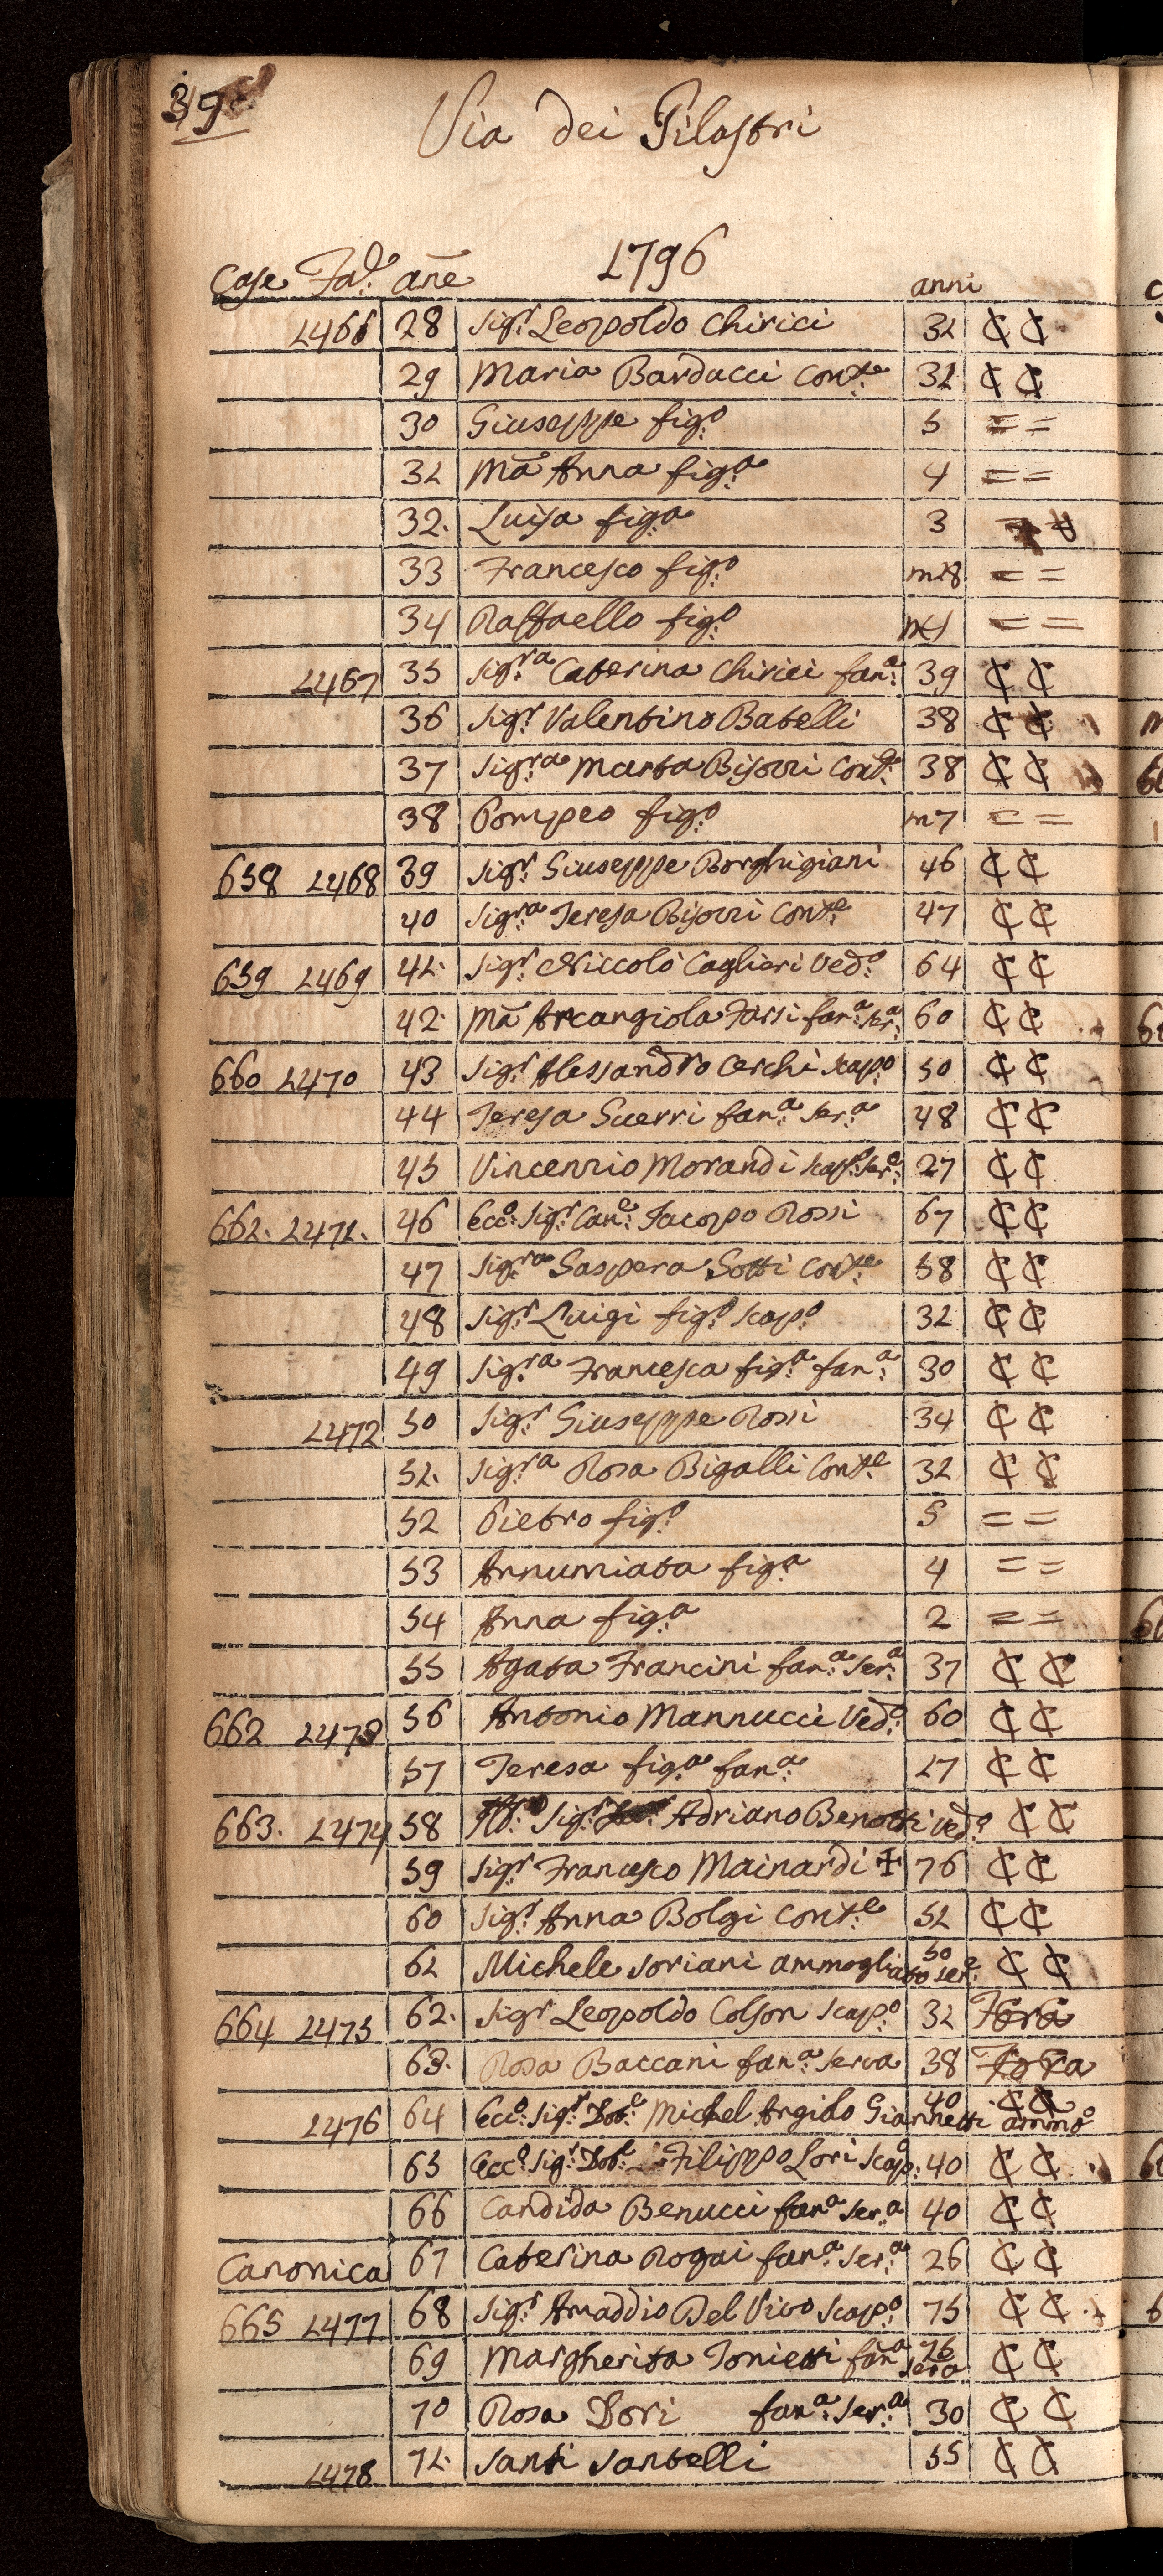 39
Via dei Pilastri
1796
Case Fad. ane anni
1466 28 Sigr. Leopoldo Chirici 31 C C
29 Maria Bardacci Conte. 31 C C
30 Giuseppe figo. 5 = =
31 Ma Anna figa. 4 = =
32. Luisa figa. 3
33 Francesco figo. m18 = =
34 Raffaello figo. = =
1467 35 Sigra. Caterina Chirici fana. 39 C C
36 Sigr. Valentino Batelli 38 C C
37 Sigra. Marta Bisorri Conte. 38 C C
38 Pompeo figo. m7 = =
658 1468 39 Sigr. Giuseppe Borghigiani 46 C C
40 Sigra. Teresa Bisorri Conte. 47 C C
659 1469 41. Sigr. Niccolò Caglieri Vedo. 64 C C
42. Ma Arcangiola Farsi fana. sera. 60 C C
660 1470 43 Sigr. Alessandro Cerchi scapo. 50 C C
44 Teresa Guerri fana. sera. 48 C C
45 Vincennio Morandi scapo. sere. 27 C C
661. 1471. 46 Ecco. Sigr. Cane. Jacopo Rossi 67 C C
47 Sigra. Gaspera Gotti Conte. 58 C C
48 Sigr. Luigi figo. scapo. 32 C C
49 Sigra. Francesca figa. fana. 30 C C
1472 50 Sigr. Giuseppe Rossi 34 C C
51. Sigra. Rosa Bigalli Conte. 32 C C
52 Pietro figo. 5 = =
53 Annumiata figa. 4 = =
54 Anna figa. 2 = =
55 Agata Francini fana. sera. 37 C C
662 1473 56 Antonio Mannucci Vedo. 60 C C
57 Teresa figa. fana. 17 C C
663. 1474 58 Sigr. Adriano Benotti Vedo. C C
59 Sigr. Francesco Mainardi + 76 C C
60 Sigr. Anna Bolgi Conte. 51 C C
61 Michele Soriani ammogliato sere. 50 C C
664 1475 62. Sigr. Leopoldo Colson scapo. 32 Fora
63. Rosa Baccani fana. serva 38 Fora
1476 64 Ecco. Sigr. Dote. Michel Angiolo Giannetti ammo. 40 C C
65 Ecco. Sigr. Dote. Filippo Lori Scapo. 40 C C
66 Candida Benucci fana. sera. 40 C C
Canonica 67 Caterina Rogai fana. sera. 26 C C
665 1477 68 Sigr. Amaddio Del Vivo scapo. 75 C C
69 Margherita Tonietti fana. sera 26 C C
70 Rosa Dori fana. sera. 30 C C
1478 71. Santi Santelli 55 C C